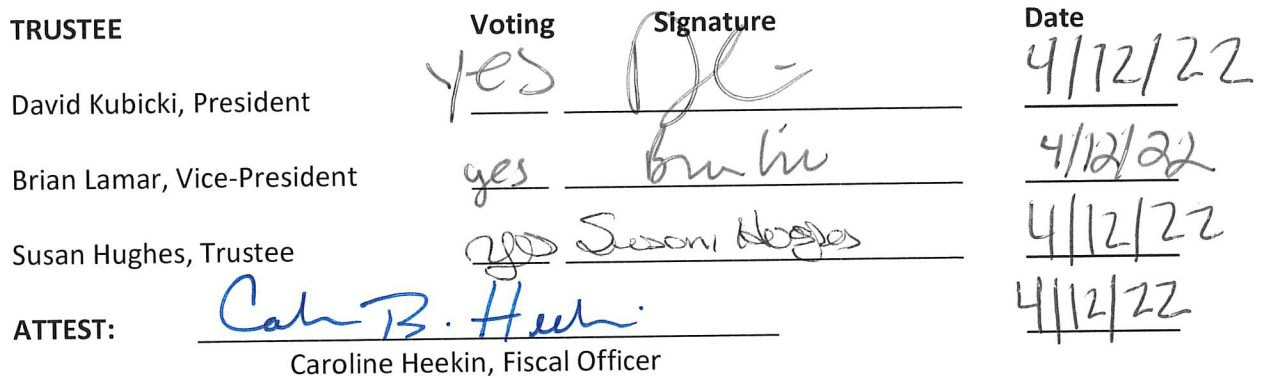 TRUSTEE Voting Signature Date
David Kubicki, President yes 4/12/22
Brian Lamar, Vice-President yes 4/12/22
Susan Hughes, Trustee yes Susan Hughes 4/12/22
ATTEST: B. 4/12/22
Caroline Heekin, Fiscal Officer